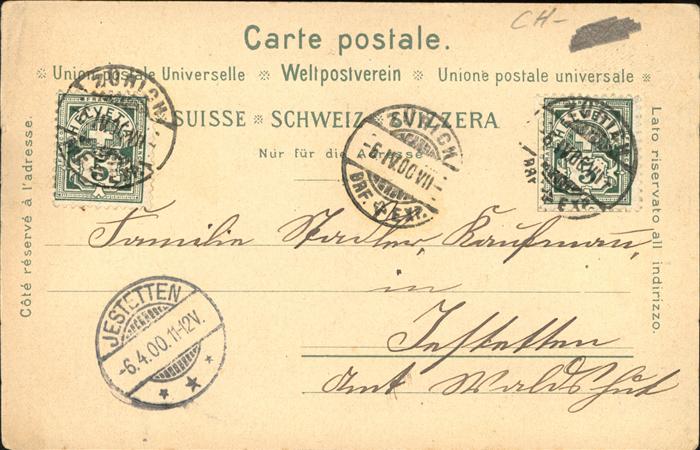 CH-
Carte postale.
Union postale Universelle ※ Weltpostverein ※ Unione postale universale
SUISSE ※ SCHWEIZ ※ SVIZZERA
Nur für die Adresse
Côté réservé à l'adresse.
Lato riservato all indirizzo.
ZÜRICH
HELVETIA
5
ZÜRICH
-6.IV.00.VII-
BRF. EXP.
HELVETIA
5
BRF. EXP.
Familie Stadler, Kaufmann,
in
Jestetten
Amt Waldshut
JESTETTEN
-6.4.00.11-12V.